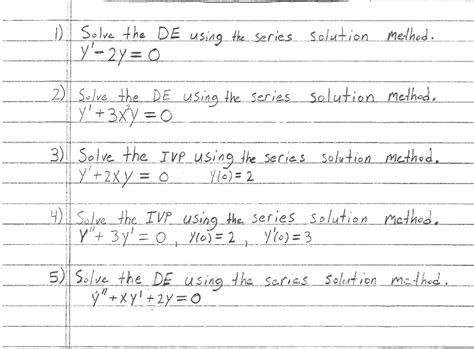 1) Solve the DE using the series solution method.
y' - 2y = 0
2) Solve the DE using the series solution method.
y' + 3x²y = 0
3) Solve the IVP using the series solution method.
y' + 2xy = 0    y(0) = 2
4) Solve the IVP using the series solution method.
y'' + 3y' = 0, y(0) = 2, y'(0) = 3
5) Solve the DE using the series solution method.
y'' + xy' + 2y = 0